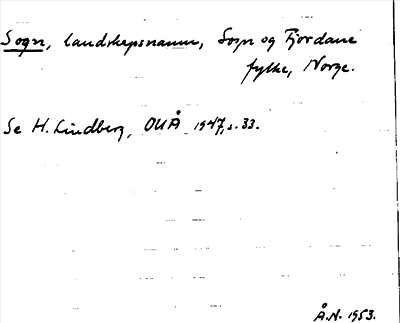 Sogn, landskapsnamn, Sogn og Fjordane
fylke, Norge.
Se H. Lindberg, OUÅ 1947, s. 33.
Å.N. 1953.